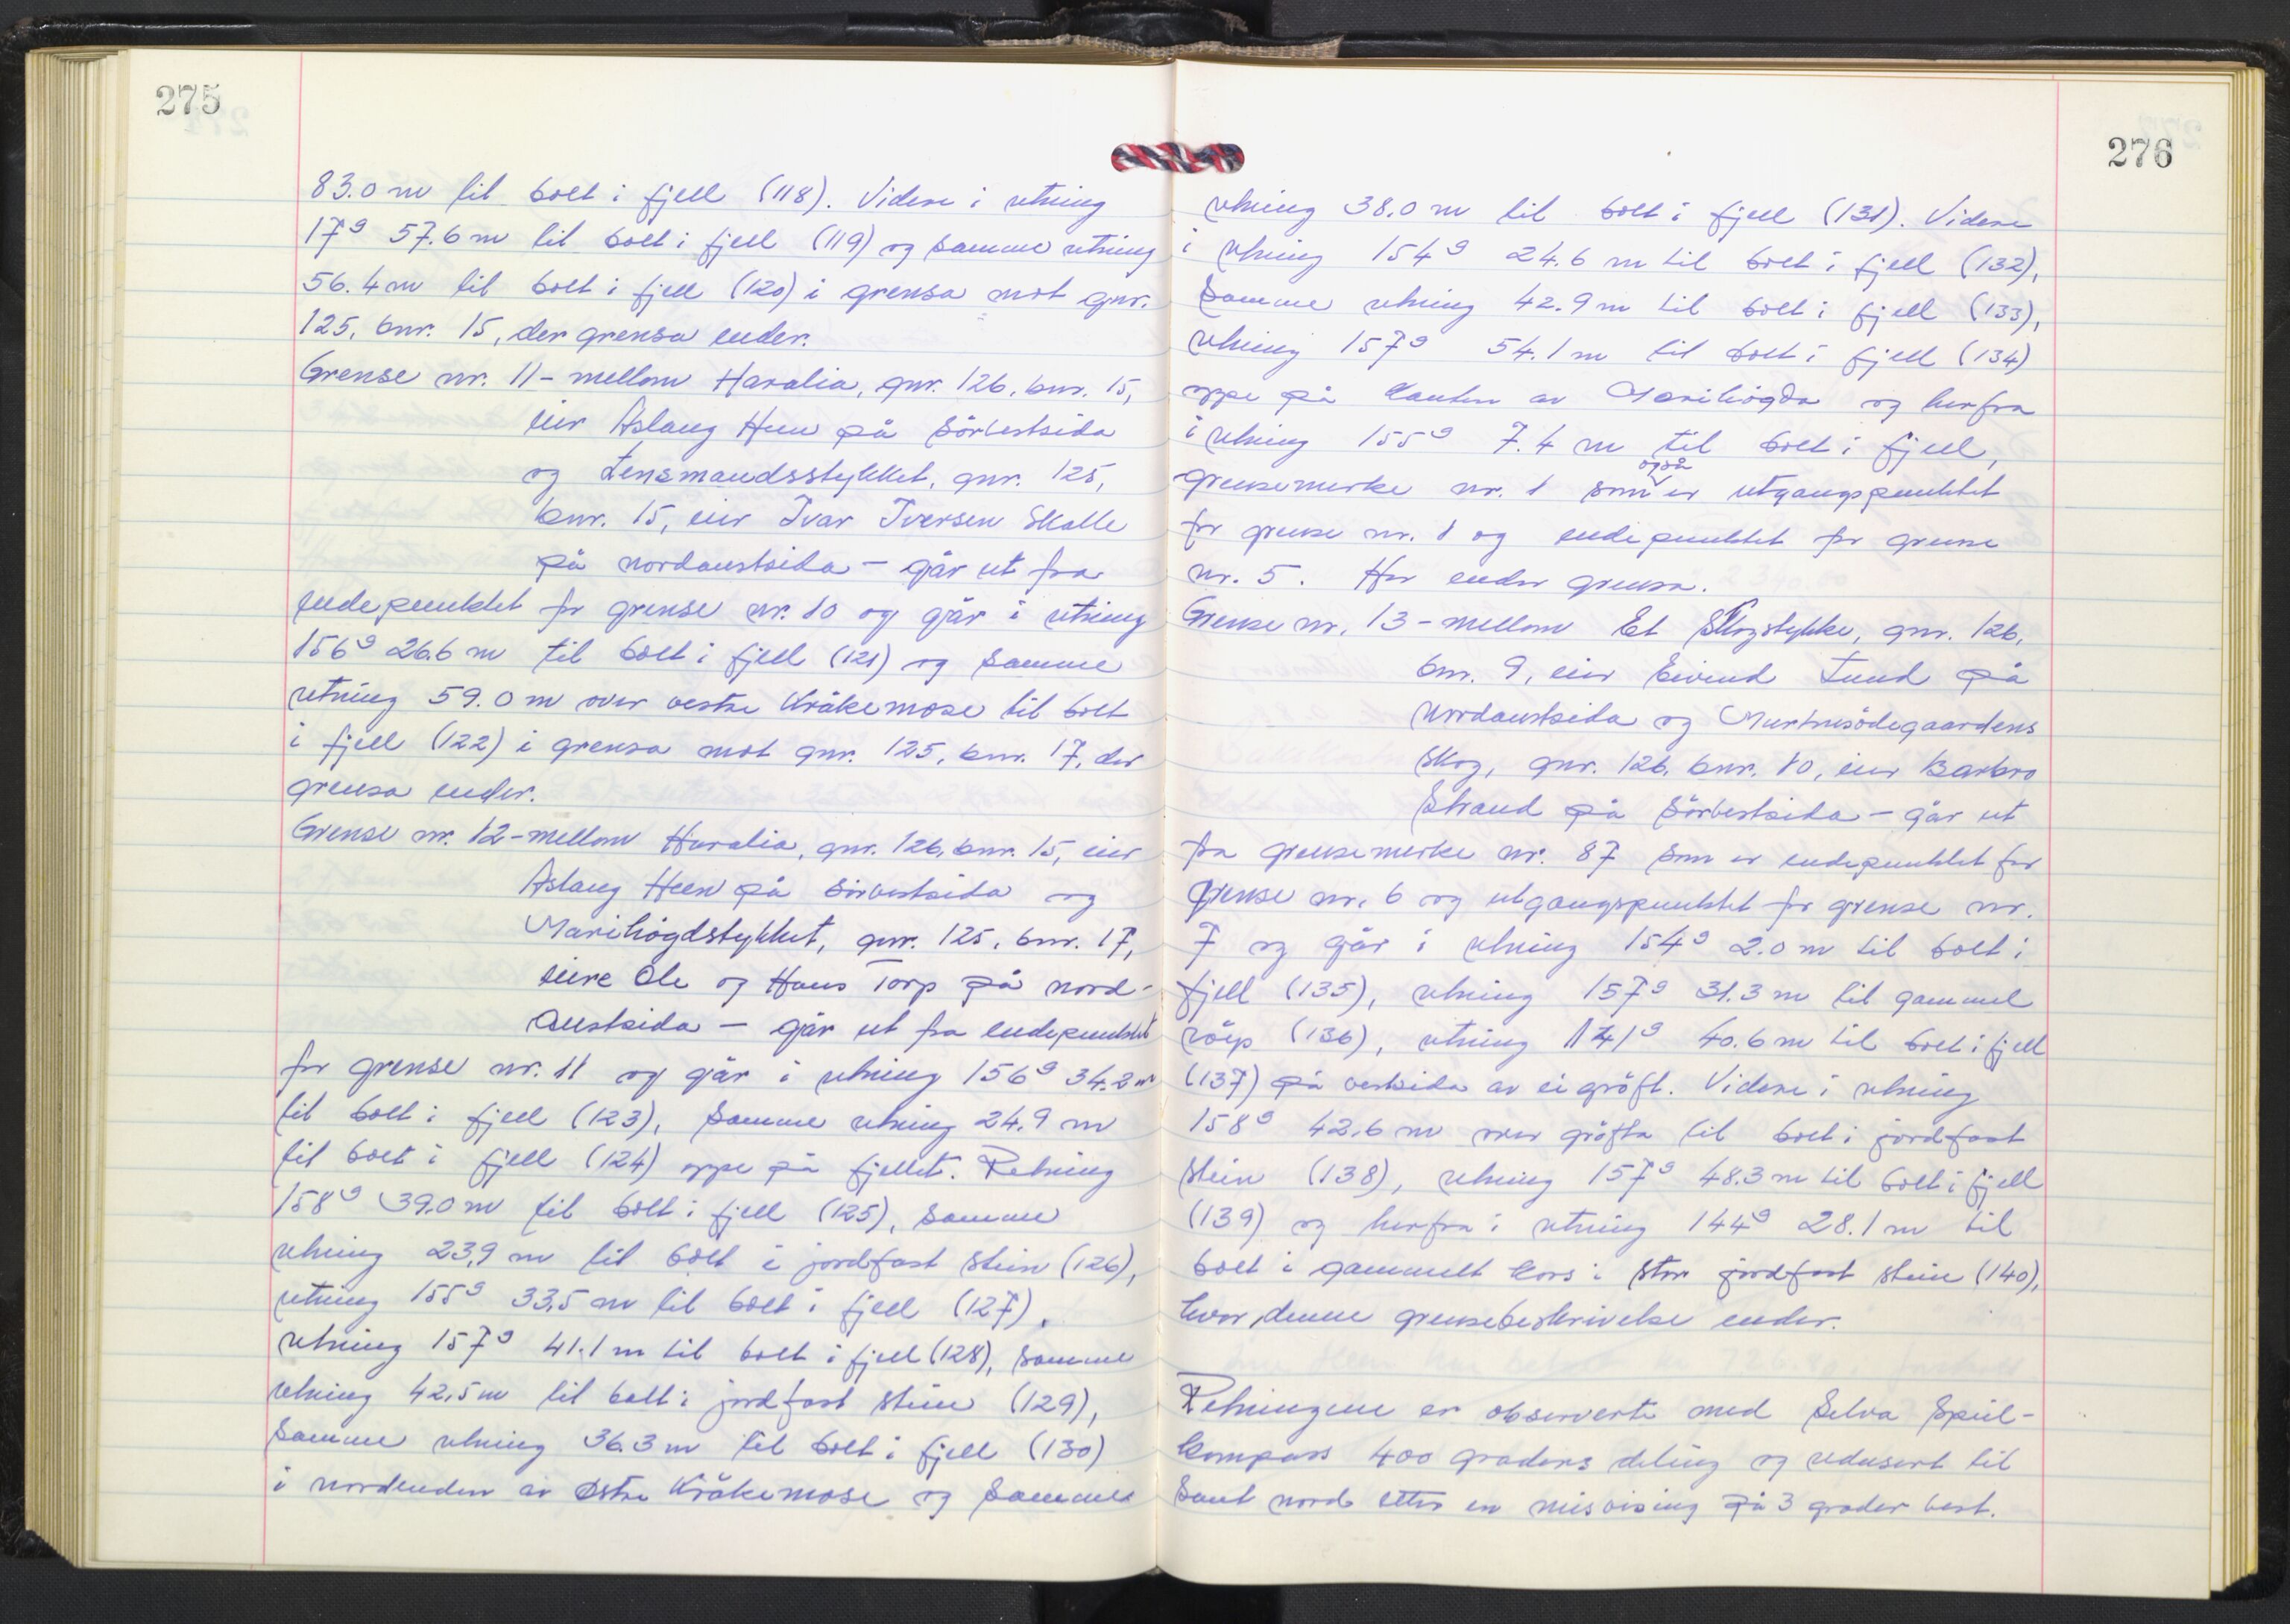 275
83.0 m til bolt i fjell (118). Videre i retning
17g 57.6 m til bolt i fjell (119) og samme retning
56.4 m til bolt i fjell (120) i grensa mot gnr.
125, bnr. 15, der grensa ender.
Grense nr. 11 - mellom Haralia, gnr. 126, bnr. 15,
eier Aslaug Heen på sörvestsida
og Lensmandsstykket, gnr. 125,
bnr. 15, eier Ivar Iversen Skolle
på nordaustsida - går ut fra
endepunktet for grense nr. 10 og går i retning
156g 26.6 m til bolt i fjell (121) og samme
retning 59.0 m over vestre Kråkemose til bolt
i fjell (122) i grensa mot gnr. 125, bnr. 17, der
grensa ender.
Grense nr. 12 - mellom Haralia, gnr. 126, bnr. 15, eier
Aslaug Heen på sörvestsida og
Marihögdstykket, gnr. 125, bnr. 17,
eiere Ole og Hans Torp på nord-
austsida - går ut fra endepunktet
for grense nr. 11 og går i retning 156g 34.2 m
til bolt i fjell (123), samme retning 24.9 m
til bolt i fjell (124) oppe på fjellet. Retning
158g 39.0 m til bolt i fjell (125), samme
retning 23,9 m til bolt i jordfast stein (126),
retning 155g 33,5 m til bolt i fjell (127),
retning 157g 41.1 m til bolt i fjell (128), samme
retning 42,5 m til bolt i jordfast stein (129),
samme retning 36.3 m til bolt i fjell (130)
i nordenden av östre Kråkemose og samme
276
retning 38.0 m til bolt i fjell (131). Videre
i retning 154g 24.6 m til bolt i fjell (132),
samme retning 42.9 m til bolt i fjell (133),
retning 157g 54.1 m til bolt i fjell (134)
oppe på kanten av Marihögda og herfra
i retning 155g 7.4 m til bolt i fjell,
grensemerke nr. 1 som også er utgangspunktet
for grense nr. 1 og endepunktet for grense
nr. 5. Her ender grensa.
Grense nr. 13 - mellom Et Skogstykke, gnr. 126,
bnr. 9, eier Eivind Lund på
nordaustsida og Murtnesödegaardens
skog, gnr. 126, bnr. 10, eier Barbro
Strand på sörvestsida - går ut
fra grensemerke nr. 87 som er endepunktet for
grense nr. 6 og utgangspunktet for grense nr.
7 og går i retning 154g 2.0 m til bolt i
fjell (135), retning 157g 31.3 m til gammel
röys (136), retning 141g 40.6 m til bolt i fjell
(137) på vestsida av ei gröft. Videre i retning
158g 42,6 m over gröfta til bolt i jordfast
stein (138), retning 157g 48.3 m til bolt i fjell
(139) og herfra i retning 144g 28.1 m til
bolt i gammelt kors i stor jordfast stein (140),
hvor denne grensebeskrivelse ender.
Retningene er observerte med Selva Speil-
kompass 400 graders deling og redusert til
sant nord etter en misvising på 3 grader vest.